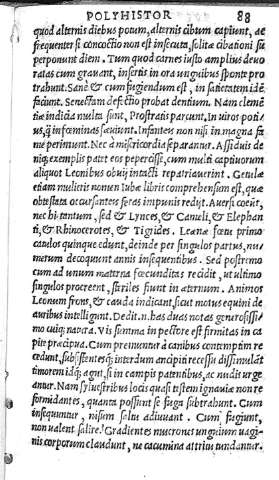 POLYHISTOR 88
quod alternis diebus potum, alternis cibum capiunt, ac
frequenter si concoctio non est insecuta, solitæ cibationi su
perponunt diem. Tum quod carnes iusto amplius deuo
ratas cum grauant, insertis in ora unguibus sponte pro
trahunt. Sanè & cum fugiendum est, in satietatem idē
faciunt. Senectam defectio probat dentium. Nam clemē
tiæ indicia multa sunt, Prostratis parcunt. In uiros poti⸗
us, q̃ in fœminas sæuiunt. Infanteis non nisi in magna fa
me perimunt. Nec à misericordia separantur. Assiduis de
niq; exemplis patet eos pepercisse, cum multi captiuorum
aliquot Leonibus obuij intacti repatriauerint. Getulæ
etiam mulieris nomen Iubæ libris comprehensum est, quæ
obtestata occursanteis feras impunis redijt. Auersi coëūt,
nec hi tantum, sed & Lynces, & Cameli, & Elephan
ti, & Rhinocerotes, & Tigrides. Leænæ fœtu primo
catulos quinque edunt, deinde per singulos partus, nu⸗
merum decoquunt annis insequentibus. Sed postremo
cum ad unum materna fœcunditas recidit, ut ultimo
singulos procreent, steriles fiunt in æternum. Animos
Leonum frons, & cauda indicant, sicut motus equini de
auribus intelligunt. Dedit.n.has duas notas generosissi⸗
mo cuiq; natura. Vis summa in pectore est firmitas in ca
pite præcipua. Cum premuntur à canibus contemptim re
cedunt, subsistentesq; interdum ancipiti recessu dissimulāt
timorem idq; agūt, si in campis patentibus, ac nudis urge
antur. Nam syluestribus locis quasi testem ignauiæ non re
formidantes, quanta possunt se fuga subtrahunt. Cum
insequuntur, nisum saltu adiuuant. Cum fugiunt,
non ualent salire. Gradientes mucrones unguium uagi⸗
nis corporum claudunt, ne cacumina attritu tundantur.